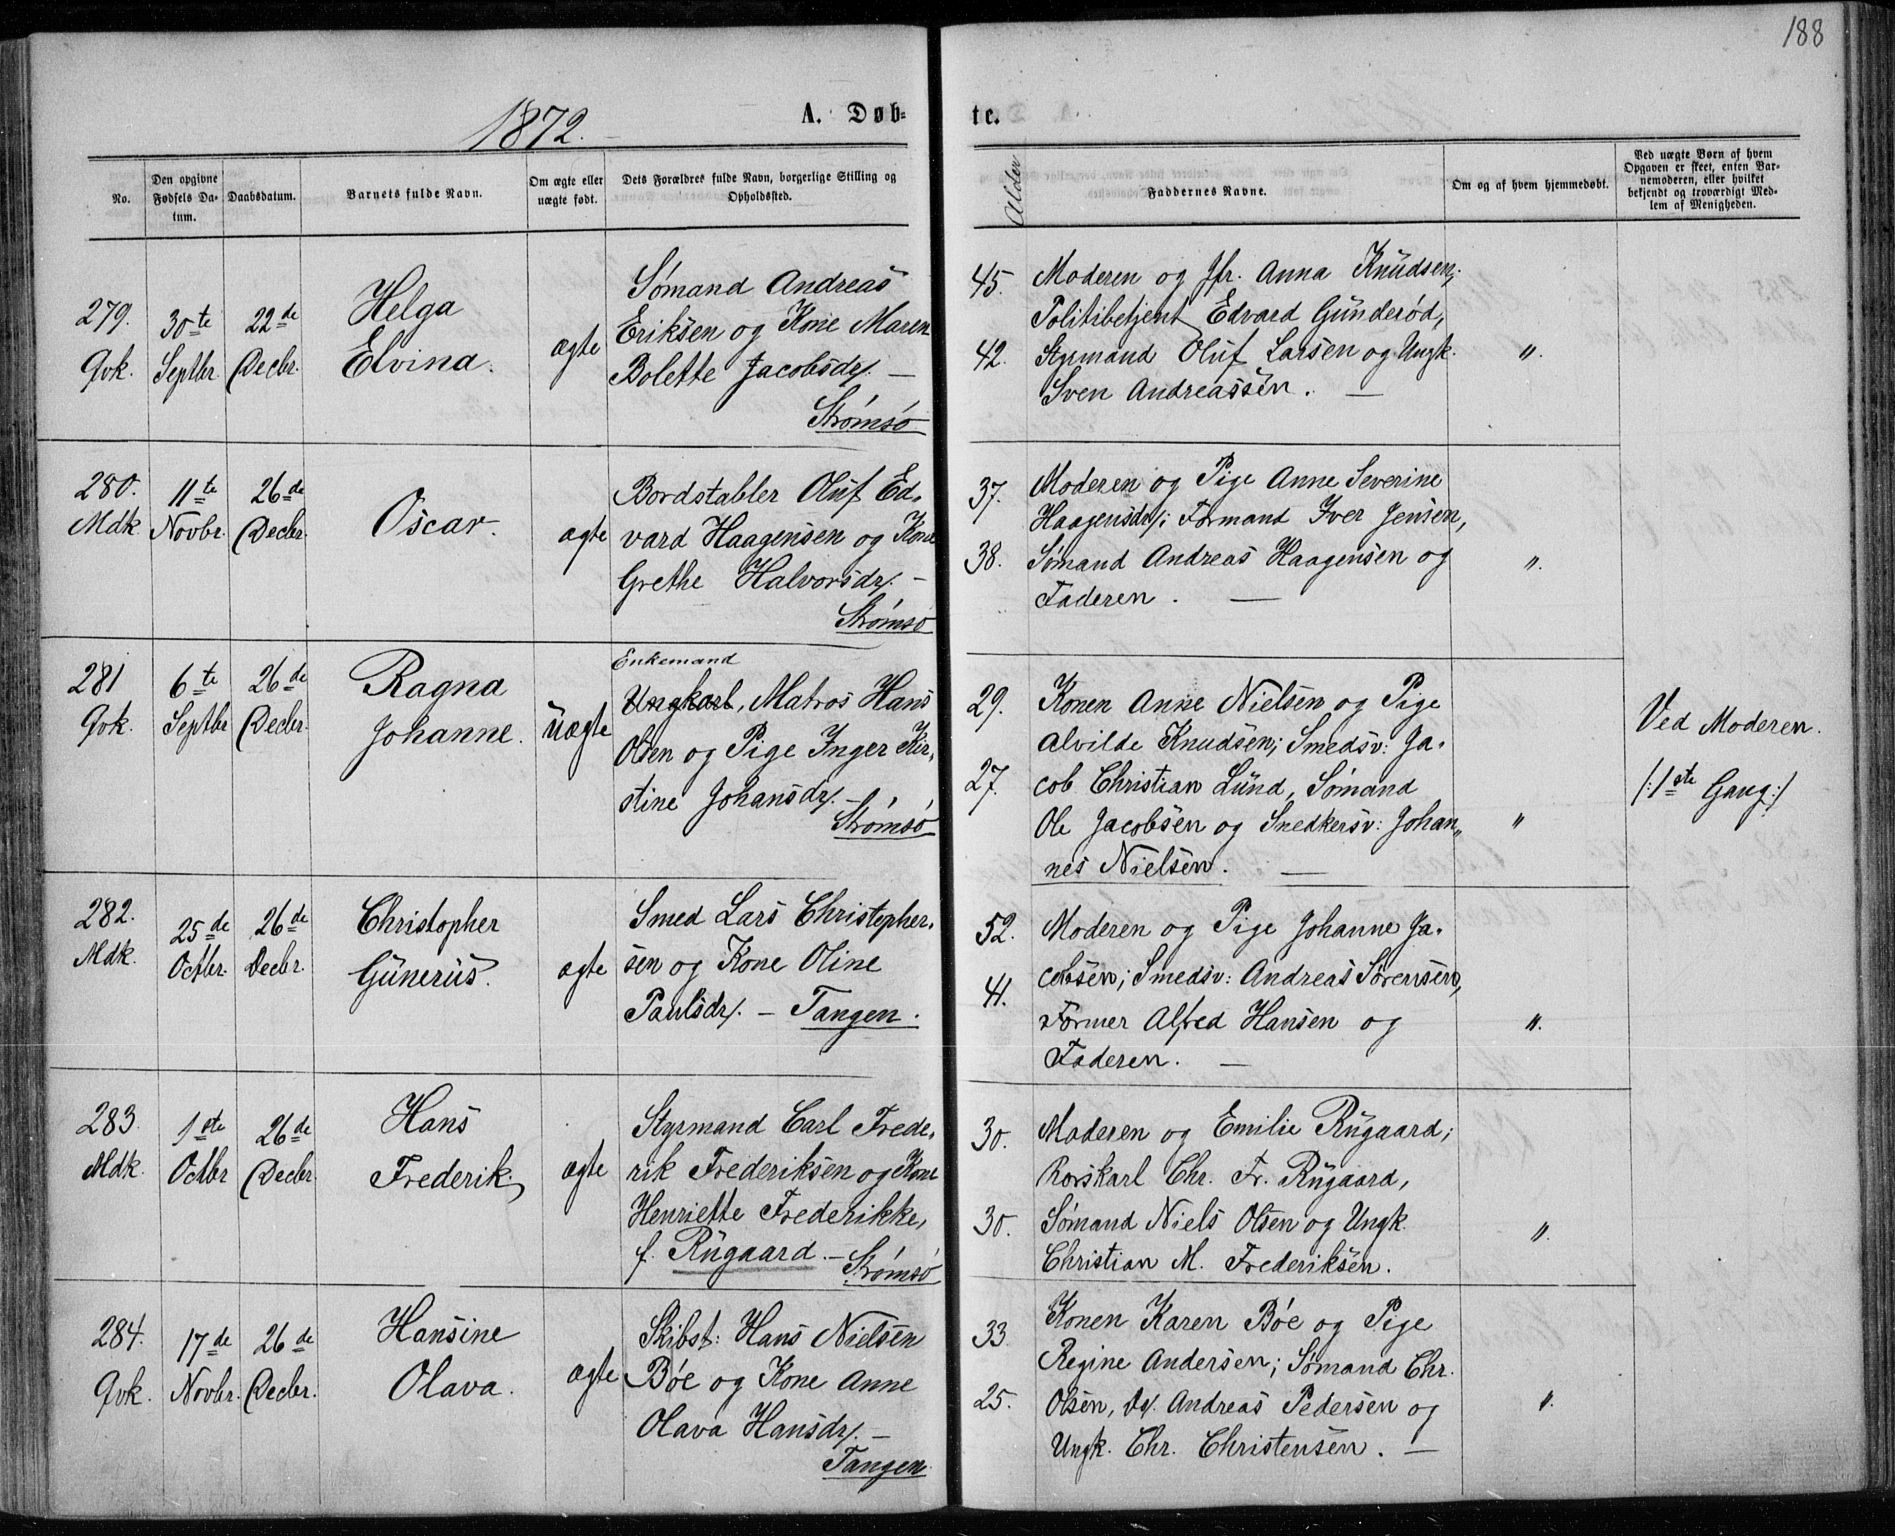 188
1872.
A. Døb-
te.
No.
Den opgivne
Fødsels Da-
tum.
Daabsdatum.
Barnets fulde Navn.
Om ægte eller
uægte født.
Dets Forældres fulde Navn, borgerlige Stilling og
Opholdssted.
Alder
Faddernes Navne.
Om og af hvem hjemmedøbt.
Ved uægte Børn af hvem
Opgaven er skeet, enten Bar-
nemoderen, eller hvilket
bekjendt og troværdigt Med-
lem af Menigheden.
279.
Qvk.
30te
Septbr.
22de
Decbr.
Helga
Elvina.
ægte
Sømand Andreas
Eriksen og Kone Maren
Bolette Jacobsdr. —
Strømsø
45.
42.
Moderen og Jfr. Anna Knudsen;
Politibetjent Edvard Gunderød,
Styrmand Oluf Larsen og Ungk.
Sven Andreassen. —
〃.
280.
Mdk
11te
Novbr.
26de
Decbr.
Oscar.
ægte
Bordstabler Oluf Ed-
vard Haagensen og Kone
Grethe Halvorsdr. —
Strømsø
37.
38.
Moderen og Pige Anne Severine
Haagensdr.; Formand Iver Jensen,
Sømand Andreas Haagensen og
Faderen. —
〃.
281
Qvk.
6te
Septbr
26de
Decbr.
Ragna
Johanne.
uægte
Enkemand
Ungkarl, Matros Hans
Olsen og Pige Inger Kir-
stine Johansdr. —
Strømsø
29.
27.
Konen Anne Nielsen og Pige
Alvilde Knudsen; Smedsv: Ja-
cob Christian Lund, Sømand
Ole Jacobsen og Snedkersv: Johan-
nes Nielsen. —
〃
Ved Moderen.
/:1ste Gang:/
282.
Mdk.
25de
Octbr.
26de
Decbr.
Christopher
Gunerius.
ægte
Smed Lars Christopher-
sen og Kone Oline
Paulsdr. — Tangen.
52.
41.
Moderen og Pige Johanne Ja-
cobsen; Smedsv: Andreas Sørensen,
Former Alfred Hansen og
Faderen. —
〃.
283.
Mdk.
1ste
Octbr
26de
Decbr.
Hans
Frederik.
ægte
Styrmand Carl Frede-
rik Frederiksen og Kone
Henriette Frederikke,
f. Rugaard. — Strømsø
30.
30.
Moderen og Emilie Rugaard;
Rorskarl Chr. Fr. Rugaard,
Sømand Niels Olsen og Ungk.
Christian M. Frederiksen.
〃.
284.
Qvk.
17de
Novbr.
26de
Decbr.
Hansine
Olava.
ægte
Skibst: Hans Nielsen
Bøe og Kone Anne
Olava Hansdr. —
Tangen
33
25.
Konen Karen Bøe og Pige
Regine Andersen; Sømand Chr.
Olsen, Do. Andreas Pedersen og
Ungk. Chr. Christensen. —
〃.